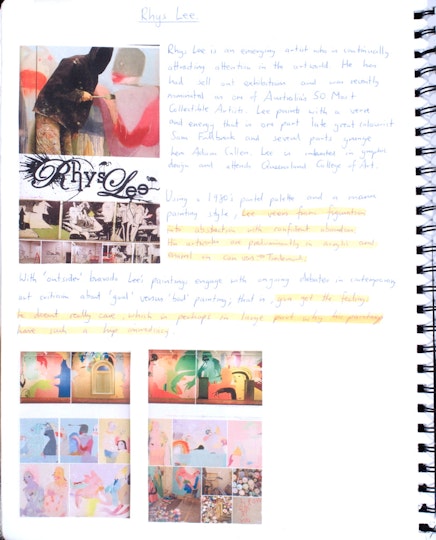 Rhys Lee
Rhys Lee is an emerging artist who is continually
attracting attention in the artworld. He has
had sell out exhibitions and was recently
nominated as one of Australia's 50 Most
Collectible Artists. Lee paints with a verve
and energy that is one part late great colourist
Sam Fullbrook and several parts grunge
hero Adam Cullen. Lee is interested in graphic
design and attends Queensland College of Art.
Rhys Lee
Using a 1980's pastel palette and a
painting style, Lee veers from figuration
into abstraction with confident abandon,
the artworks are predominantly in acrylic and
enamel on canvas
With 'outsider' bravado Lee's paintings engage with ongoing debates in contemporary
art criticism about 'good' versus 'bad' painting, that is, you get the feeling
he doesnt really care, which is perhaps in large part why his paintings
have such a